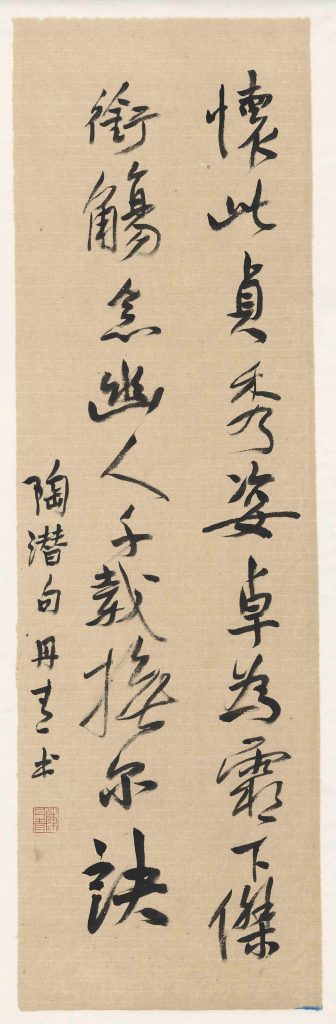 懷此貞秀姿卓為霜下傑
銜觴念幽人千載撫尔訣
陶潜句丹青术